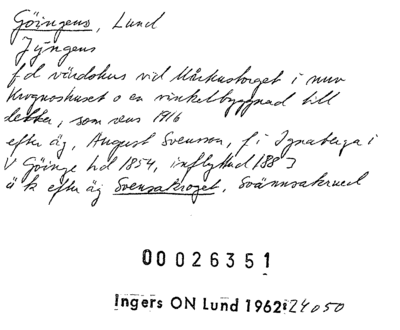 Göingens, Lund
Jÿngens
f d värdshus vid Mårtenstorget i nuv
Krognoshuset o en vinkelbyggnad till
detta, som revs 1916
efter äg, August Svensson, f i Ignaberga i
V Göinge hd 1854, inflyttad 188
ä k efter äg Svensakroget, Svännsakrued
00026351
Ingers ON Lund 1962: 24050